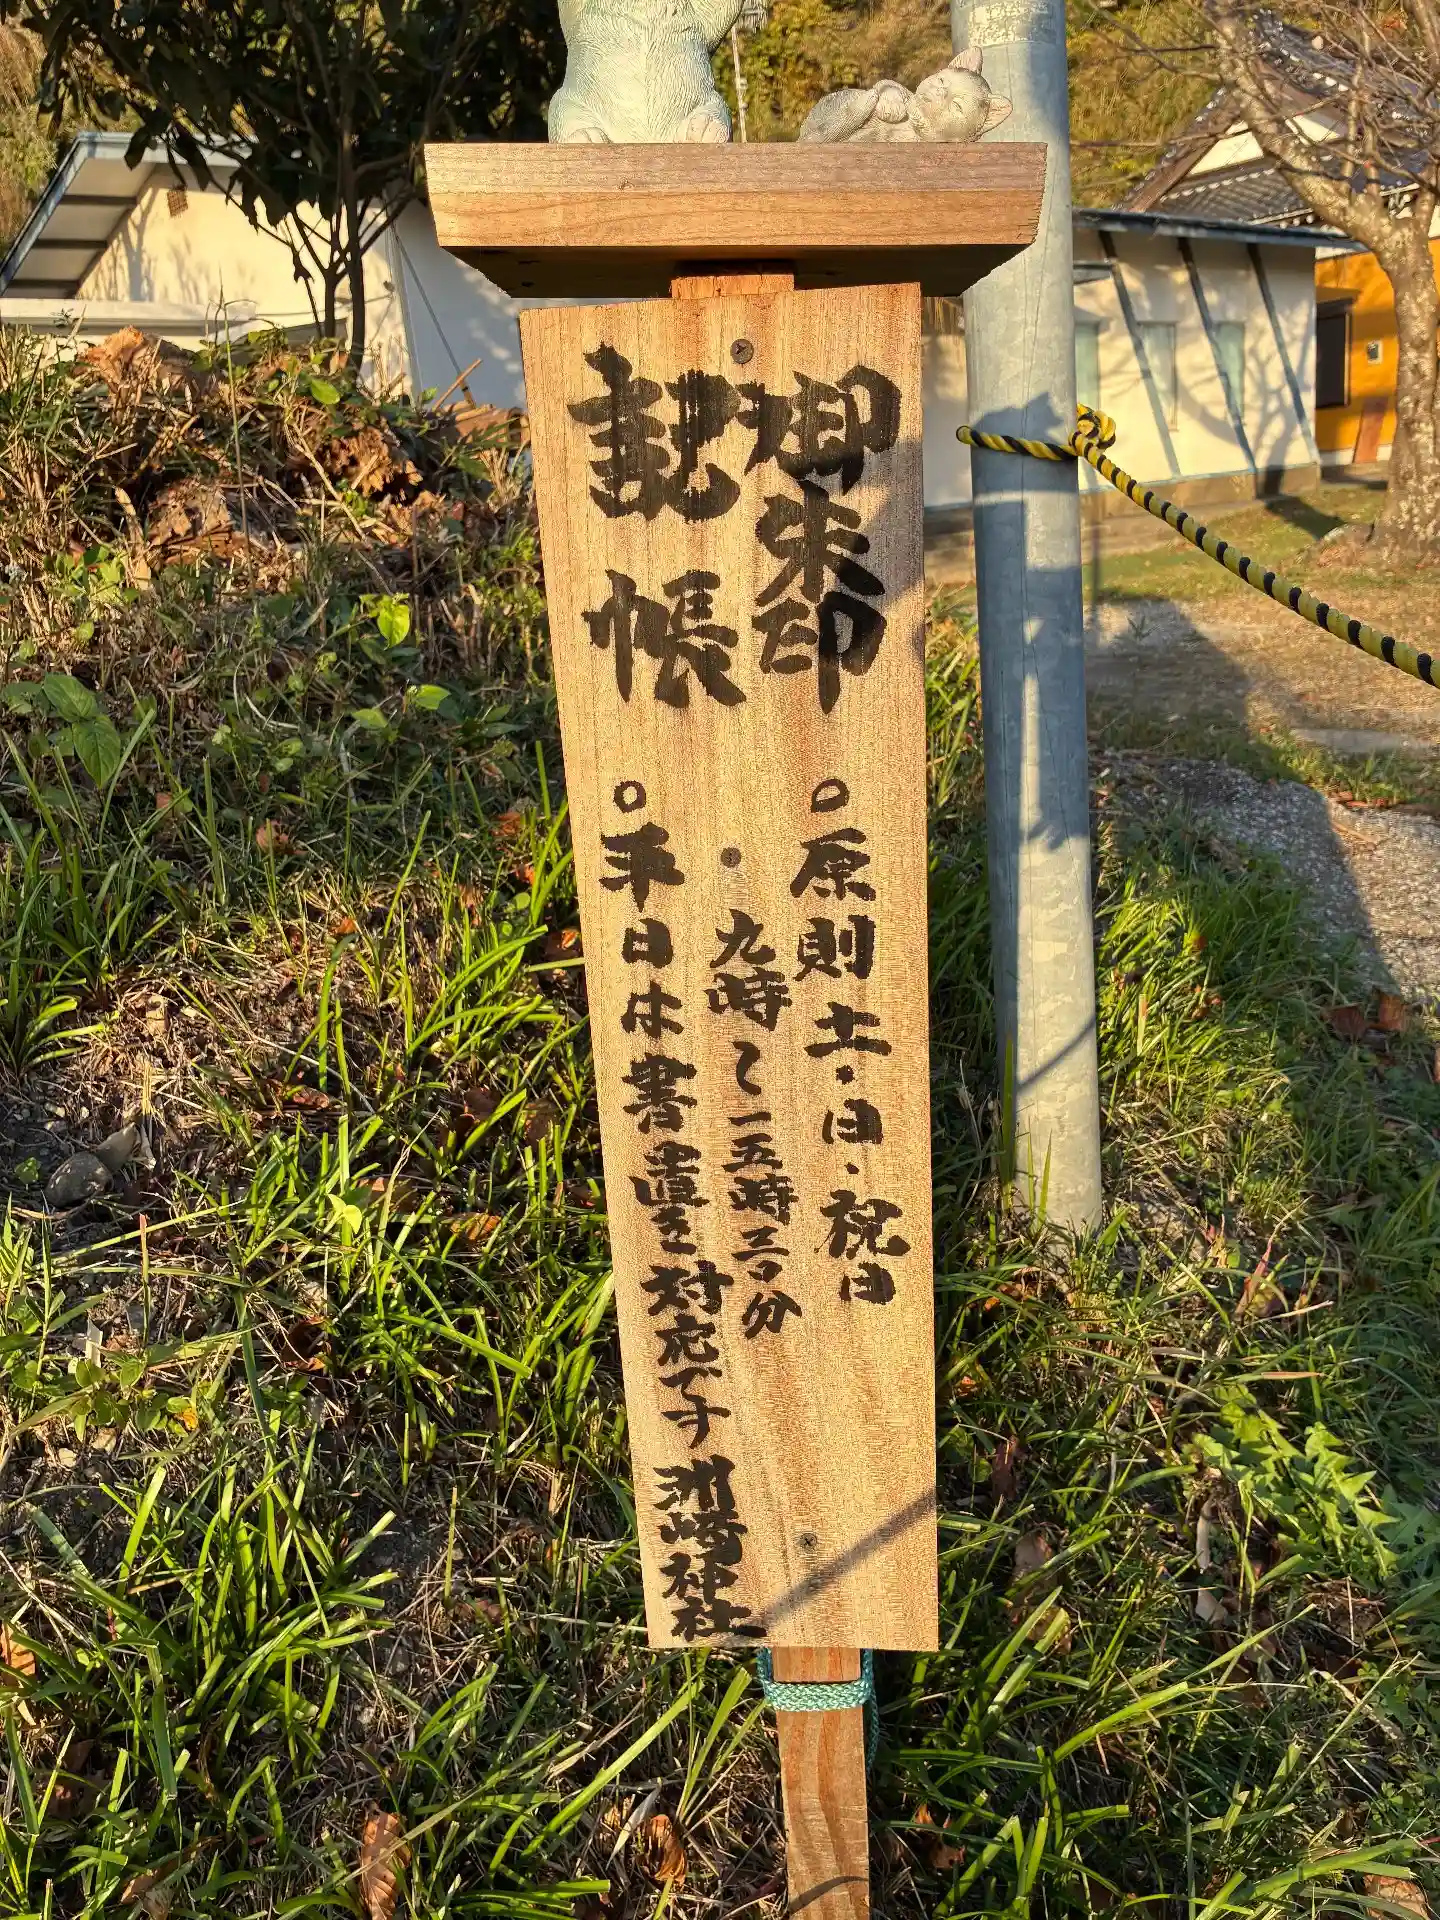 御朱印
記帳
○原則土・日・祝日
九時〜一五時三〇分
○平日は書置き対応です
洲崎神社